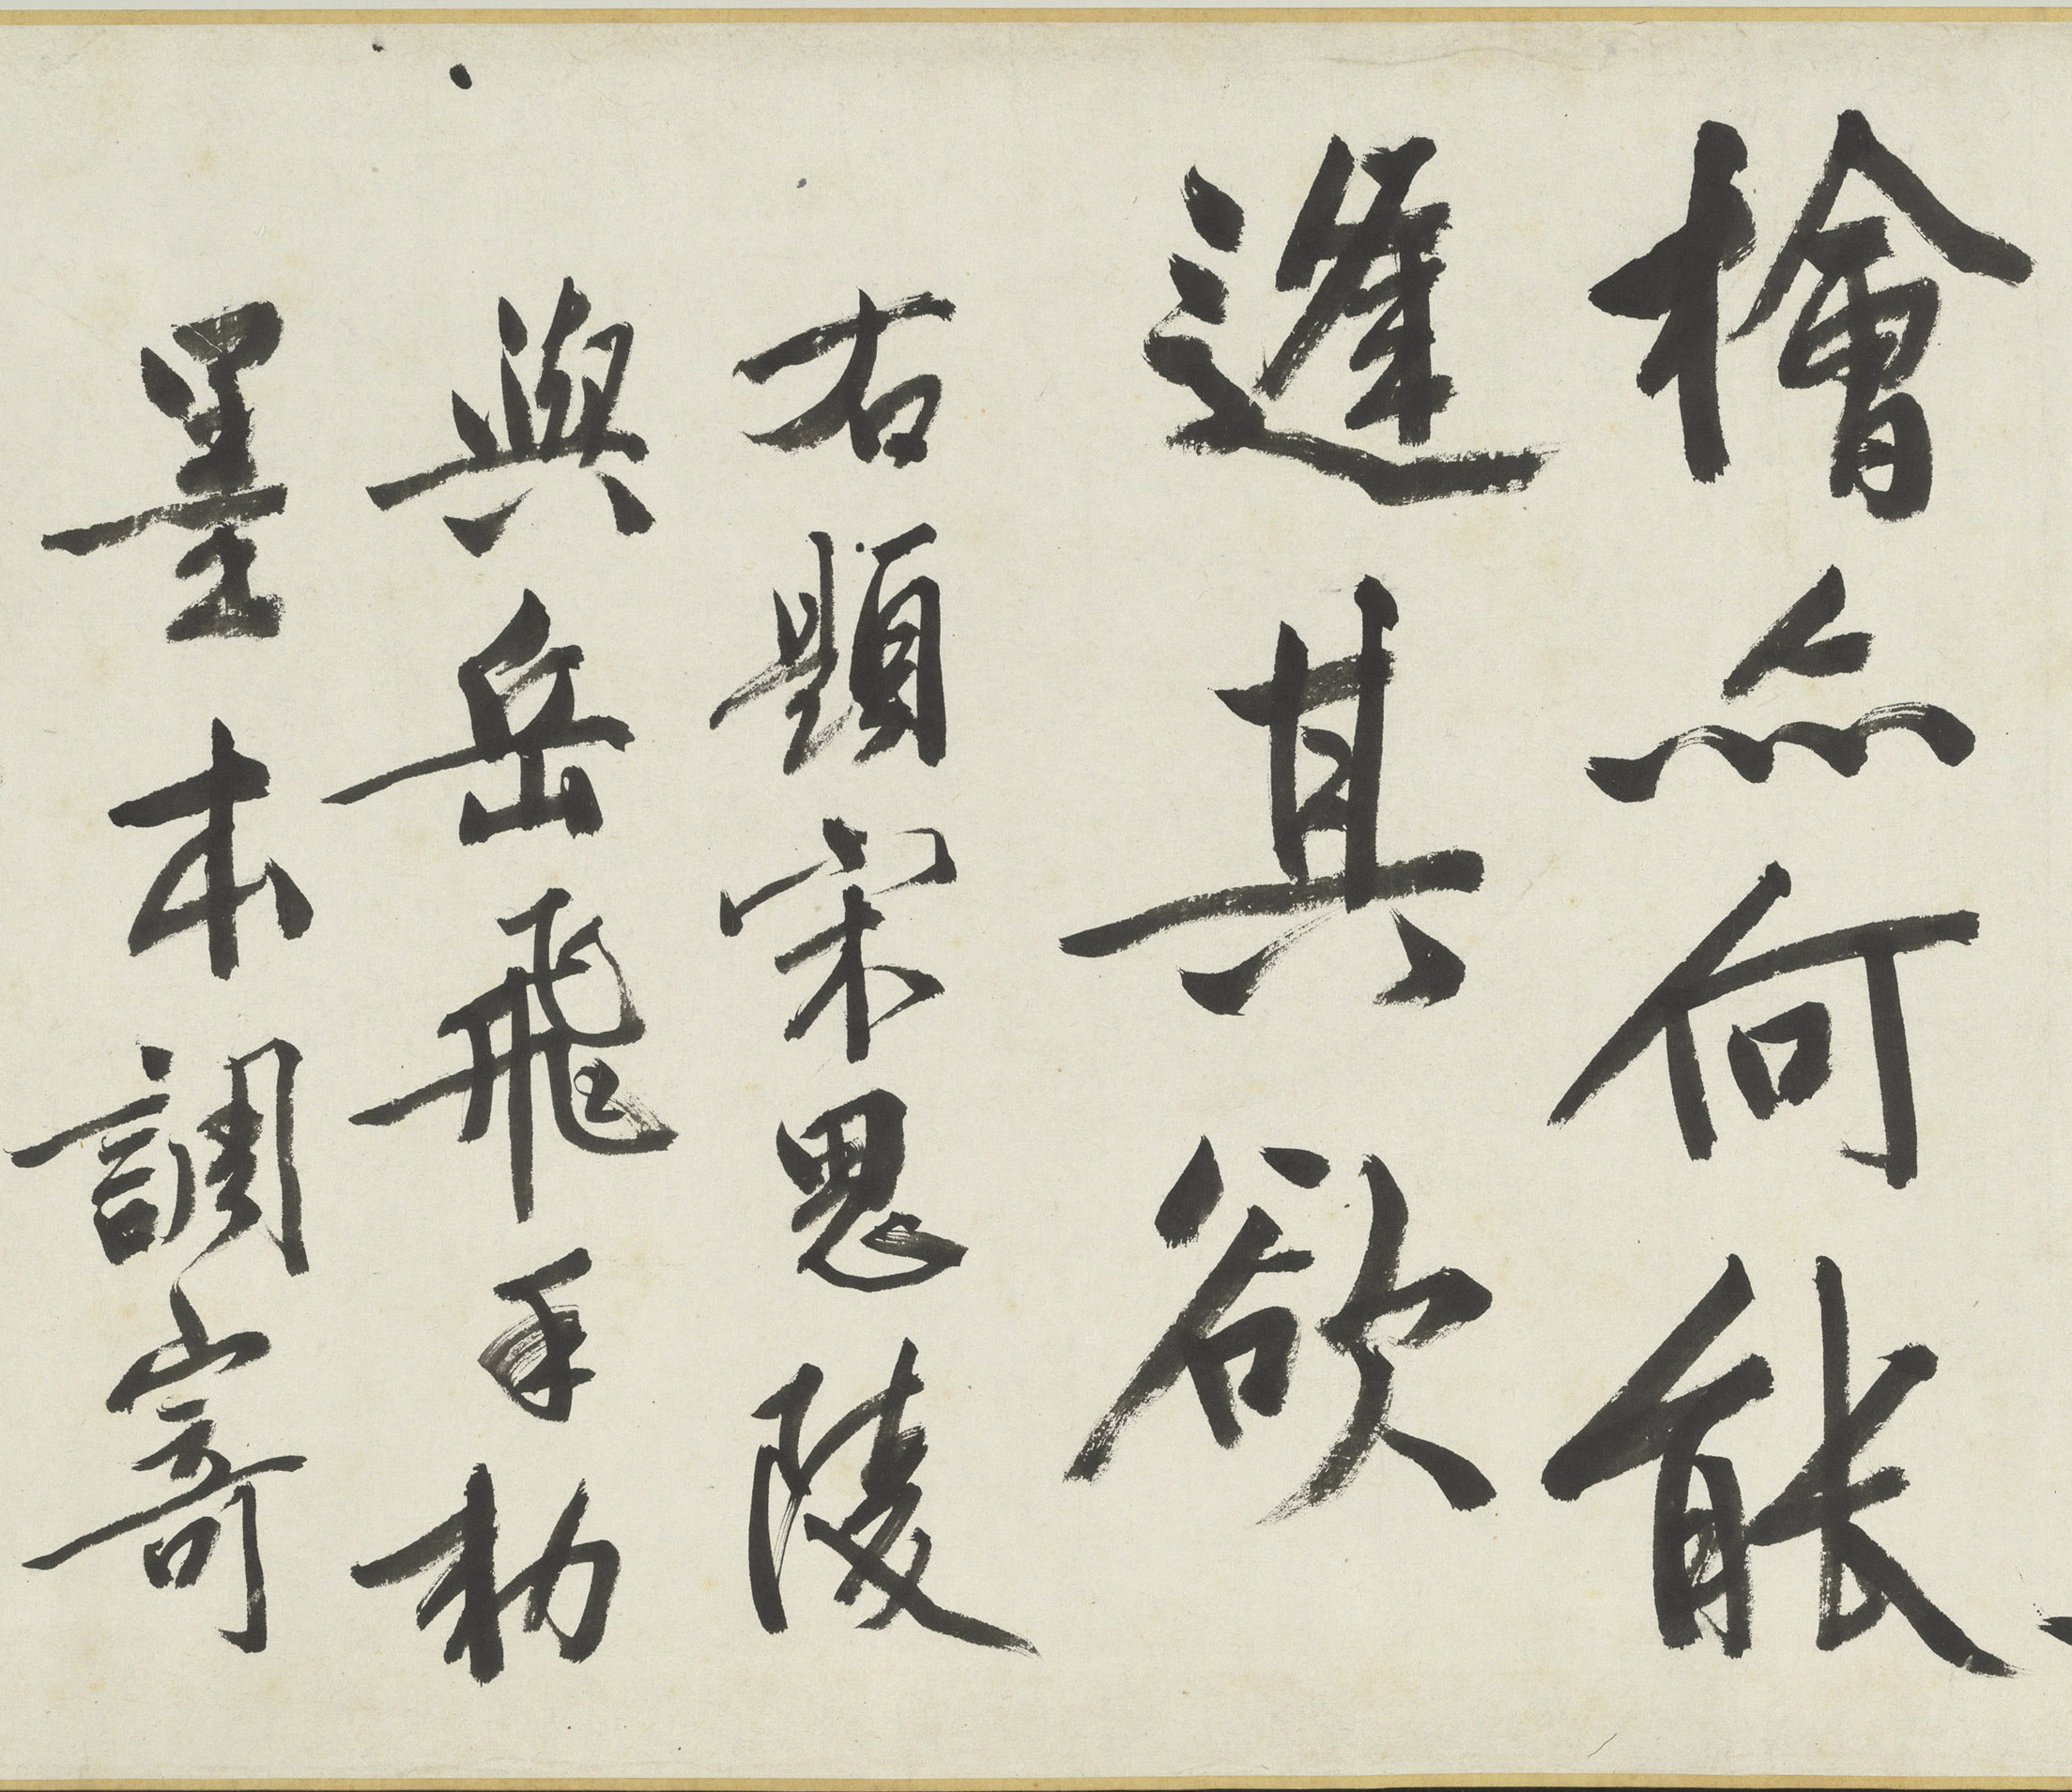 檜亦何能
逢其欲
右題宋思陵
與岳飛手勅
墨本調寄